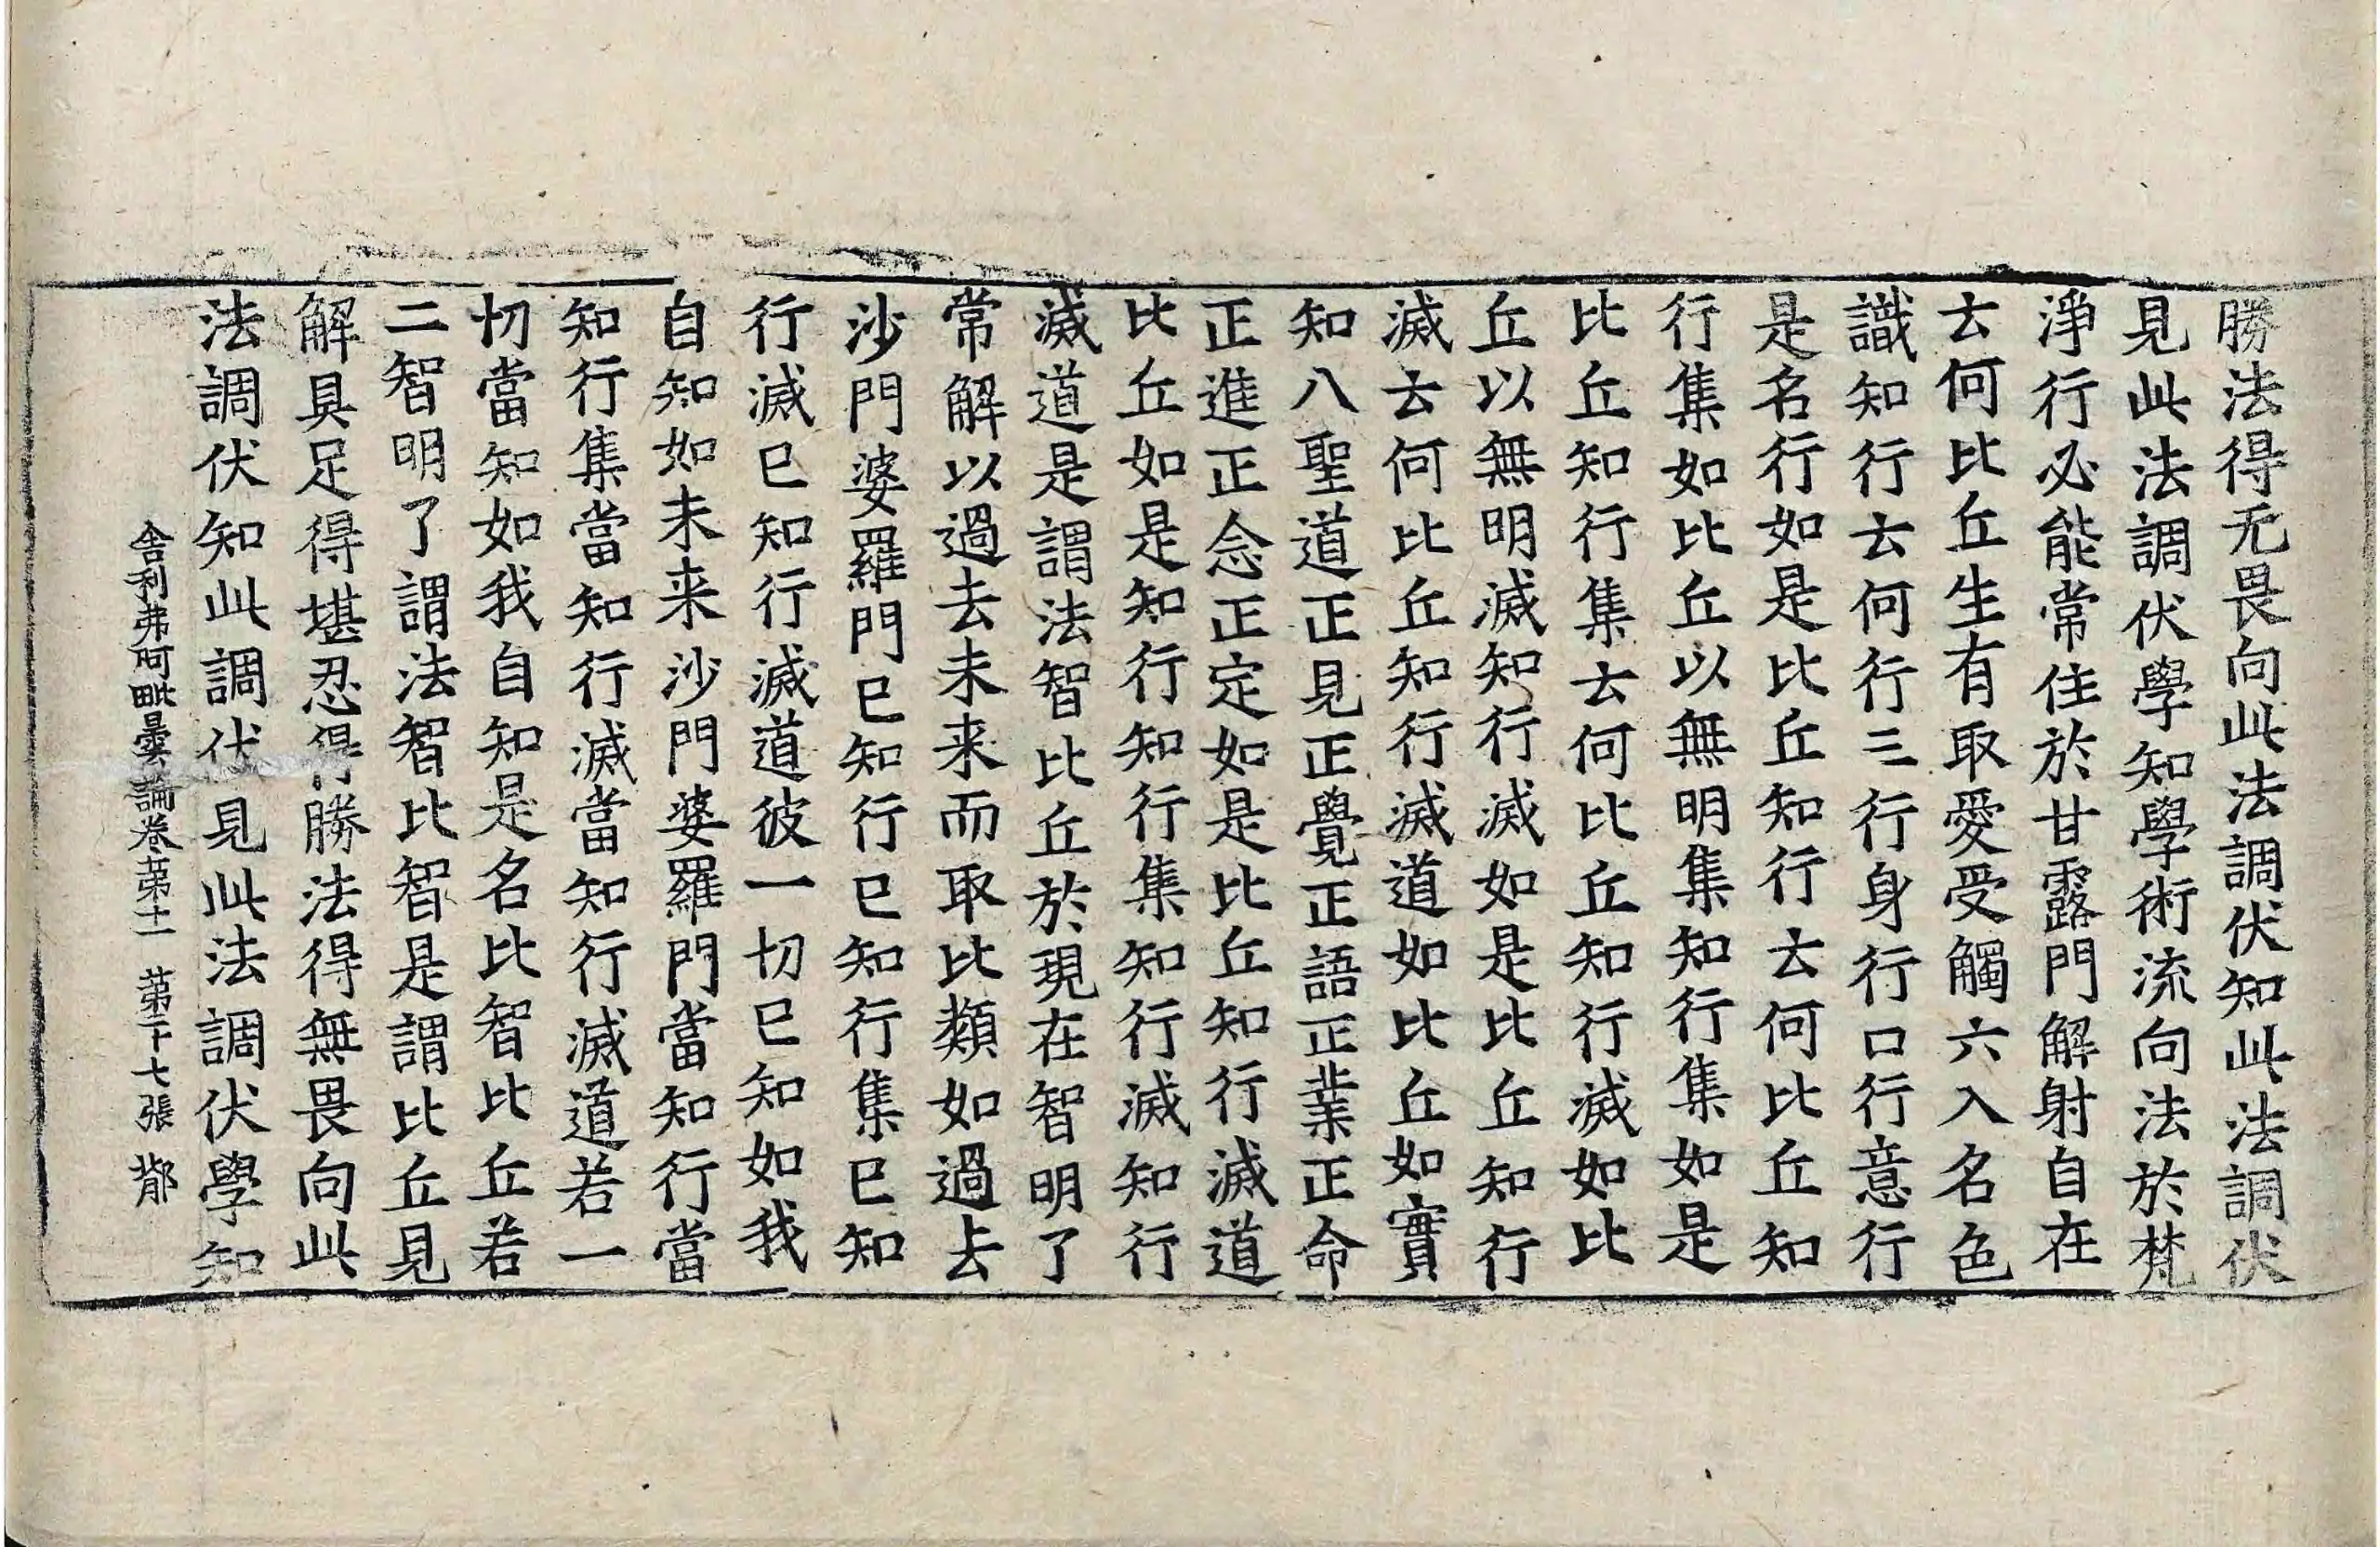 勝法得无畏向此法調伏知此法調伏
見此法調伏學知學術流向法於梵
淨行必能常住於甘露門解射自在
云何比丘生有取愛受觸六入名色
識知行云何行三行身行口行意行
是名行如是比丘知行云何比丘知
行集如比丘以無明集知行集如是
比丘知行集云何比丘知行滅如比
丘以無明滅知行滅如是比丘知行
滅云何比丘知行滅道如比丘如實
知八聖道正見正覺正語正業正命
正進正念正定如是比丘知行滅道
比丘如是知行知行集知行滅知行
滅道是謂法智比丘於現在智明了
常解以過去未来而取比類如過去
沙門婆羅門已知行已知行集已知
行滅已知行滅道彼一切已知如我
自知如未来沙門婆羅門當知行當
知行集當知行滅當知行滅道若一
切當知如我自知是名比智比丘若
二智明了謂法智比智是謂比丘見
解具足得堪忍得勝法得無畏向此
法調伏知此調伏見此法調伏學知
舍利弗阿毗曇論卷第十一 第下七張 鄁